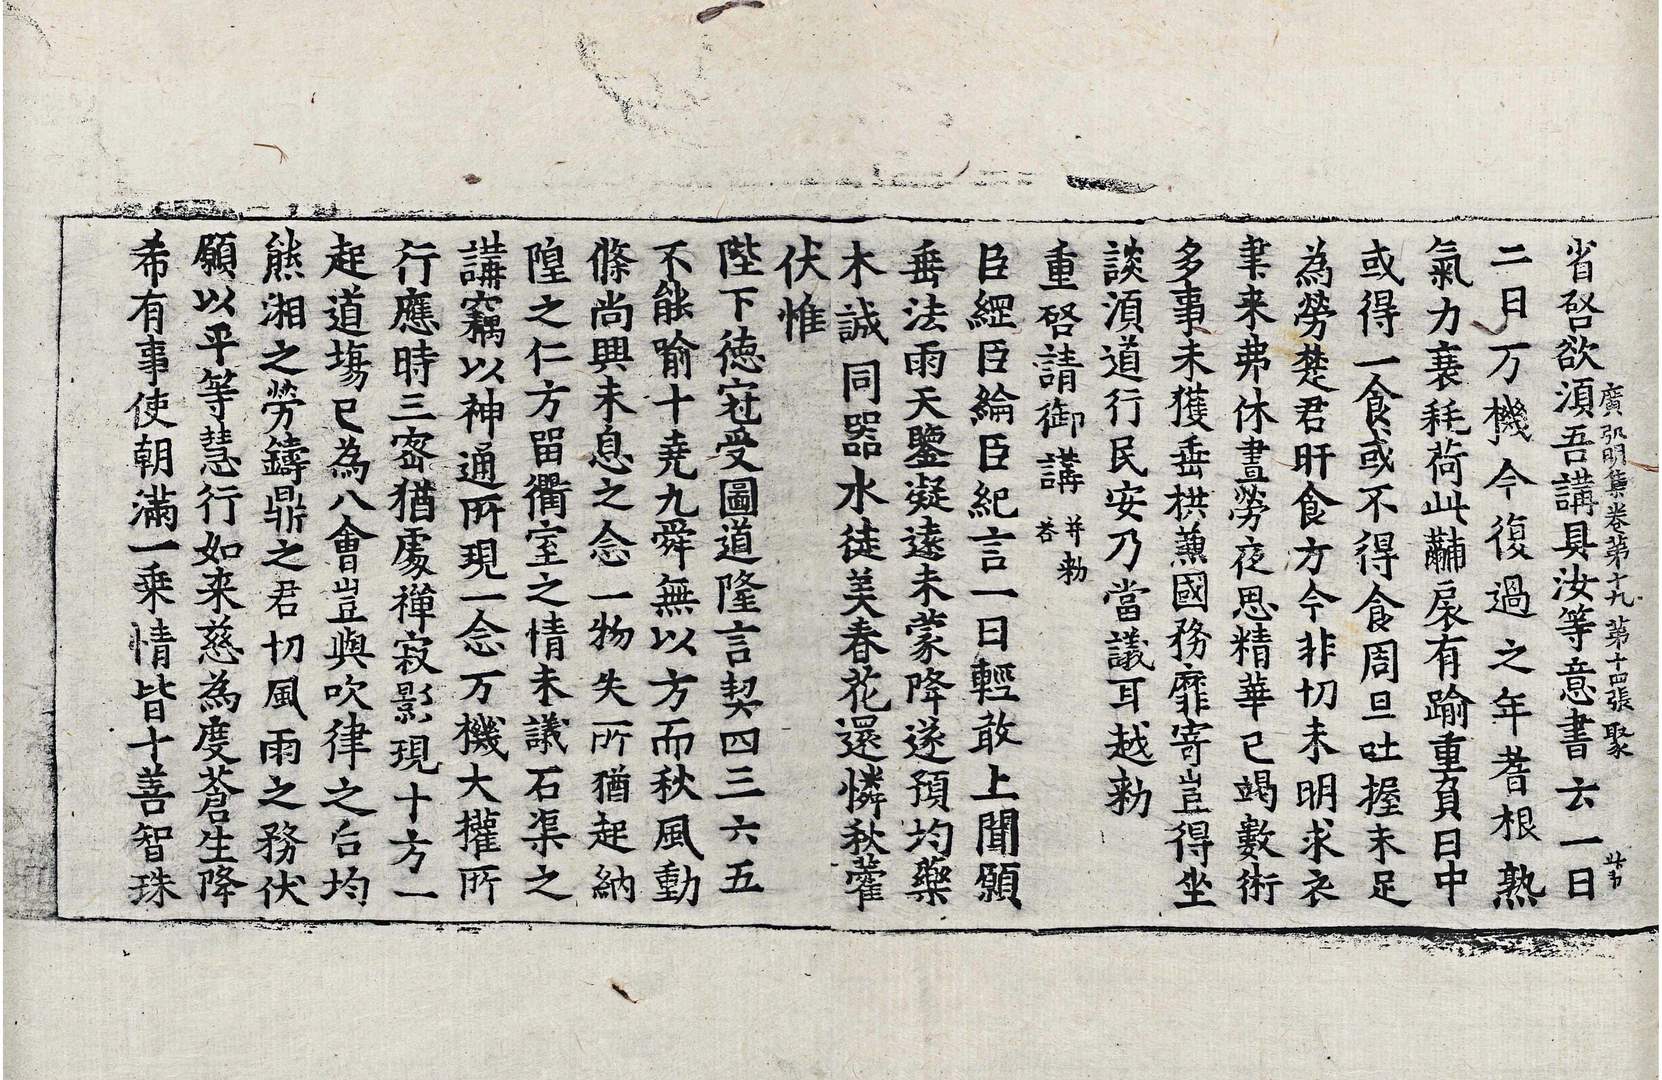 廣弘明集卷第十九 第十四張 聚
省啓欲湏吾講具汝等意書云一日
二日万機今復過之年耆根熟
氣力衰耗荷此黼扆有踰重負日中
或得一食或不得食周旦吐握未足
為勞楚君旰食方今非切未明求衣
事来弗休晝勞夜思精華已竭數術
多事未獲垂拱兼國務靡寄豈得坐
談湏道行民安乃當議耳越勑
重啓請御講 并勑答
臣綱臣綸臣紀言一日輕敢上聞願
垂法雨天鑒凝遠未蒙降遂預均藥
木誠同器水徒美春花還憐秋藿
伏惟
陛下德冠受圖道隆言契四三六五
不能喻十堯九舜無以方而秋風動
條尚興未息之念一物失所猶起納
隍之仁方留衢室之情未議石渠之
講竊以神通所現一念万機大權所
行應時三密猶處禪寂影現十方一
起道場已為八會豈與吹律之后均
熊湘之勞鑄鼎之君切風雨之務伏
願以平等慧行如来慈為度蒼生降
希有事使朝滿一乘情皆十善智珠